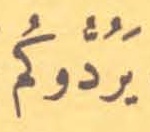 يَرُدُّوكُم